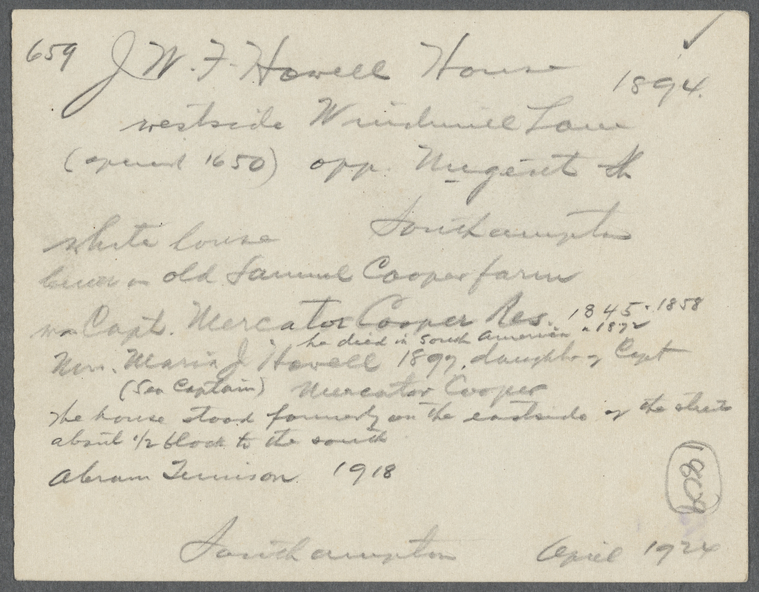 659 J. W. F. Howell House 1894.
westside Windmill Lane
(opened 1650) opp. Nugent St
Southampton
white house
known as old Samuel Cooper farm
was Capt. Mercator Cooper Res. 1845-1858
he died in South America - 1872
Mrs. Maria J. Howell 1897, daughter of Capt
(Sea Captain) Mercator Cooper
The house stood formerly on the eastside of the street
about 1/2 block to the south
Abram Jennison 1918
1809
Southampton April 1924